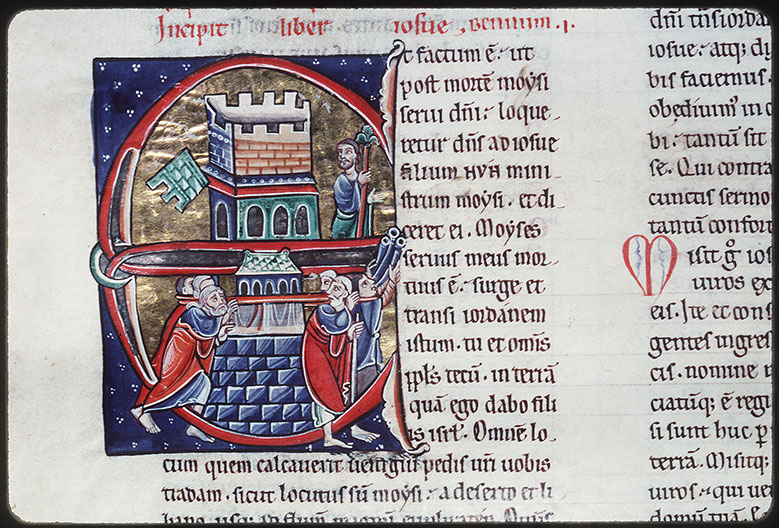 Incipit liber iosue, bennum .i.
t factum ē: ut
post mortē moysi
serui dn̄i: loque
retur dn̄s ad iosue
filium nun mini
strum moysi. et di
ceret ei. Moyses
seruus meus mor
tuus ē: surge et
transi iordanem
istum. tu et omīs
ppl̄s tecū. in terrā
quā ego dabo fili
is isrl̄. Omnē lo
cum quem calcauerit uestigiū pedis ur̄i uobis
tradam. sicut locutus sū moysi: a deserto et li
bano usq; ad
dn̄i tūs iorda
iosue: atq; di
bis faciemus.
obediuim' in c
bi: tantū sit
se. Qui contra
cunctis sermo
tantū confort
Misit g̊ ios
uiros ex
eis. Ite et cons
gentes ingres
cis. nomine
ciatūq; ē regi
si sunt huc p
terrā. Misitq;
uiros: qui ue
domū tuā ē